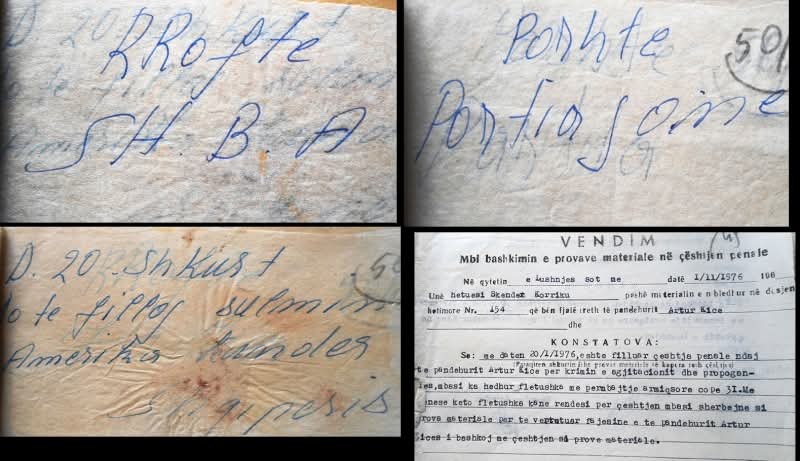 RRofte
SH. B. A
Poshte
50/
Partia jone
D. 20. Shkurt
do te filloj sulmin
Amerika kunder
Shqiperis
VENDIM
Mbi bashkimin e provave materiale në çështjen penale
Në qytetin e Lushnjes sot me datë 1/11/1976 198
Unë hetuesi Skender Korriku pashë materialin e mbledhur në dosjen
hetimore Nr. 154 që bën fjalë rreth të pandehurit Artur Kice
dhe
KONSTATOVA:
Se: me daten 20/1/1976, eshte filluar çeshtja penale ndaj
te pandehurit Artur Kice per krimin e agjitacionit dhe propogan-
des, mbasi ka hedhur fletushka me permbajtje armiqsore cope 31. Me
qenese keto fletushka kane rendesi per çeshtjen mbasi sherbejne si
prova materiale per te vertetuar fajesine e te pandehurit Artur
Kices i bashkoj me çeshtjen si prove materiale.